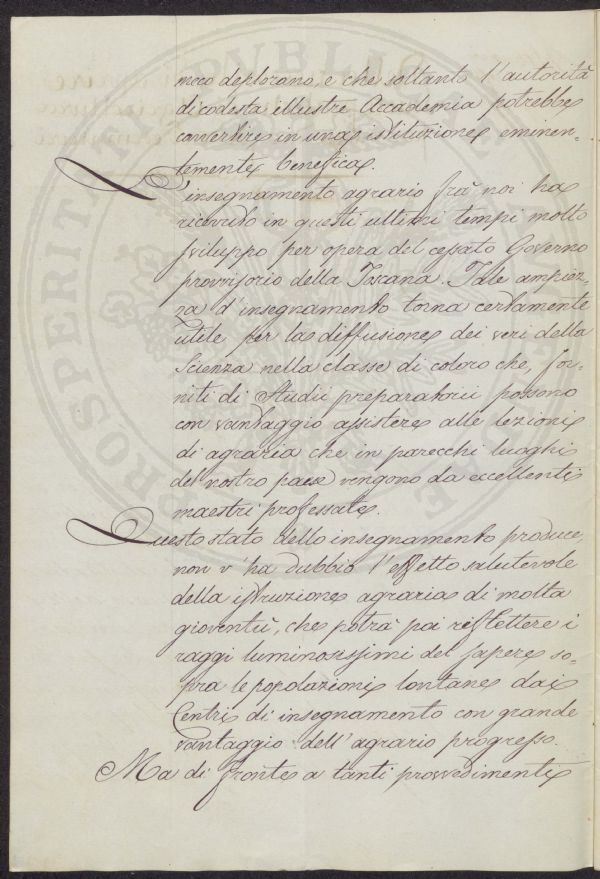 meco deplorano, e che soltanto l'autorità
di codesta illustre Accademia potrebbe
convertire in una istituzione eminen-
temente benefica.
L'insegnamento agrario frà noi ha
ricevuto in questi ultimi tempi molto
sviluppo per opera del cessato Governo
provvisorio della Toscana. Tale ampiez-
za d'insegnamento torna certamente
utile per la diffusione dei veri della
Scienza nella classe di coloro che, for-
niti di Studii preparatorii possono
con vantaggio assistere alle lezioni
di agraria che in parecchi luoghi
del nostro paese vengono da eccellenti
maestri professate.
Questo stato dello insegnamento produce,
non v'ha dubbio l'effetto salutevole
della istruzione agraria di molta
gioventù, che potrà poi riflettere i
raggi luminosissimi del sapere so-
pra le popolazioni lontane dai
Centri di insegnamento con grande
vantaggio dell'agrario progresso.
Ma di fronte a tanti provvedimenti